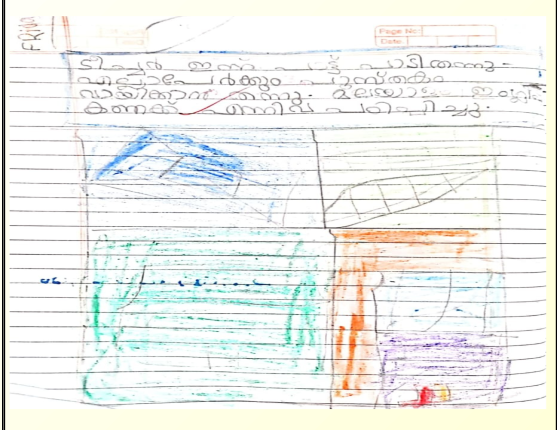 FRiDA
Page No:
Date
ടീച്ചർ ഇന്ന് പാട്ട് പാടിതന്നു.
എല്ലാപേർക്കും പുസ്തകം
വായിക്കാൻ തന്നു. മലയാളം
കണക്ക് എന്നിവ പഠിപ്പിച്ചു.